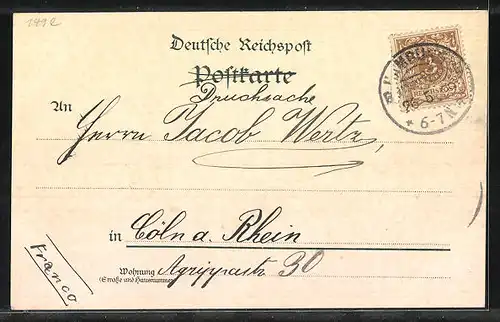 1892
Deutsche Reichspost
Postkarte
Drucksache
An
Herrn Jacob Wertz,
in Cöln a. Rhein
Wohnung Agrippastr 30
(Straße und Hausnummer)
Franco
3
* 6-7N *